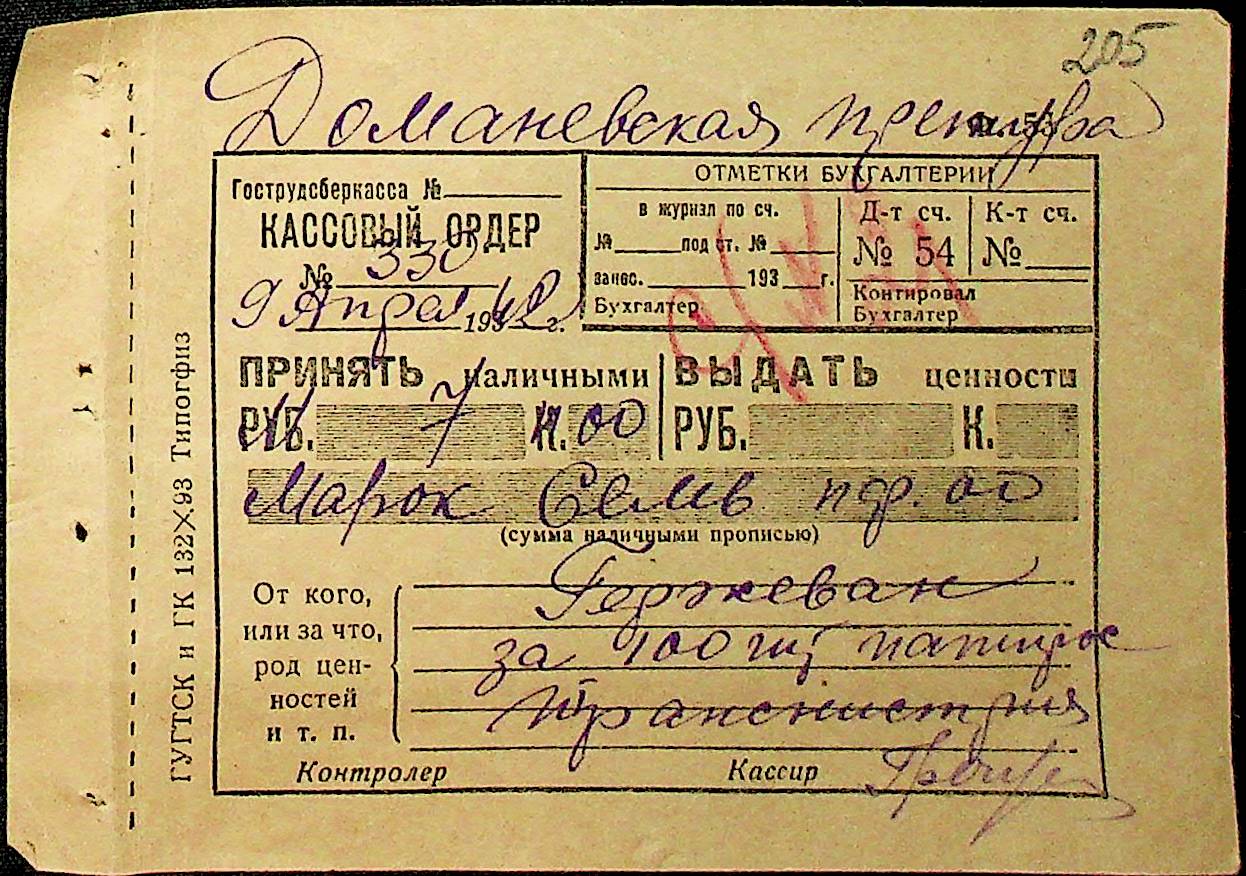 205
Доманевская претура
Гострудсберкасса №
КАССОВЫЙ ОРДЕР
№ 330
9 Апрел 1942 г.
ОТМЕТКИ БУХГАЛТЕРИИ
в журнал по сч.
№ под ст. №
занес. 193 г.
Бухгалтер
Д-т сч.
№ 54
К-т сч.
№
Контировал
Бухгалтер
ПРИНЯТЬ наличными
РУБ. 7 К. 00
ВЫДАТЬ ценности
РУБ. К.
Марок Семь пф. 00
(сумма наличными прописью)
От кого,
или за что,
род цен-
ностей
и т. п.
Гержеван
за 100 шт папирос
Транснистрия
Контролер Кассир
ГУГТСК и ГК 132×93 Типогфиз